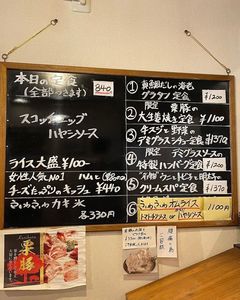 本日の定食
(全部つきます)
840
スコッチエッグ
ハヤシソース
ライス大盛 ¥100-
女性人気No1 ハムと
チーズたっぷりのキッシュ ¥440
きゅめきゅめ カキ氷
各330円
① 魚介だしの海老
グラタン定食 ¥1200
② 限定 栗豚の
大生姜焼き定食 ¥1100
③ キスジと野菜の
デミグラスシチュー定食 ¥1370
④ 限定 デミグラスソースの
特製ハンバーグ定食 ¥1200
⑤ ウニトビ子と明太子
クリームスパ定食 ¥1370
⑥ オムライス 1100円
トマトソース or ハヤシソース
栗豚